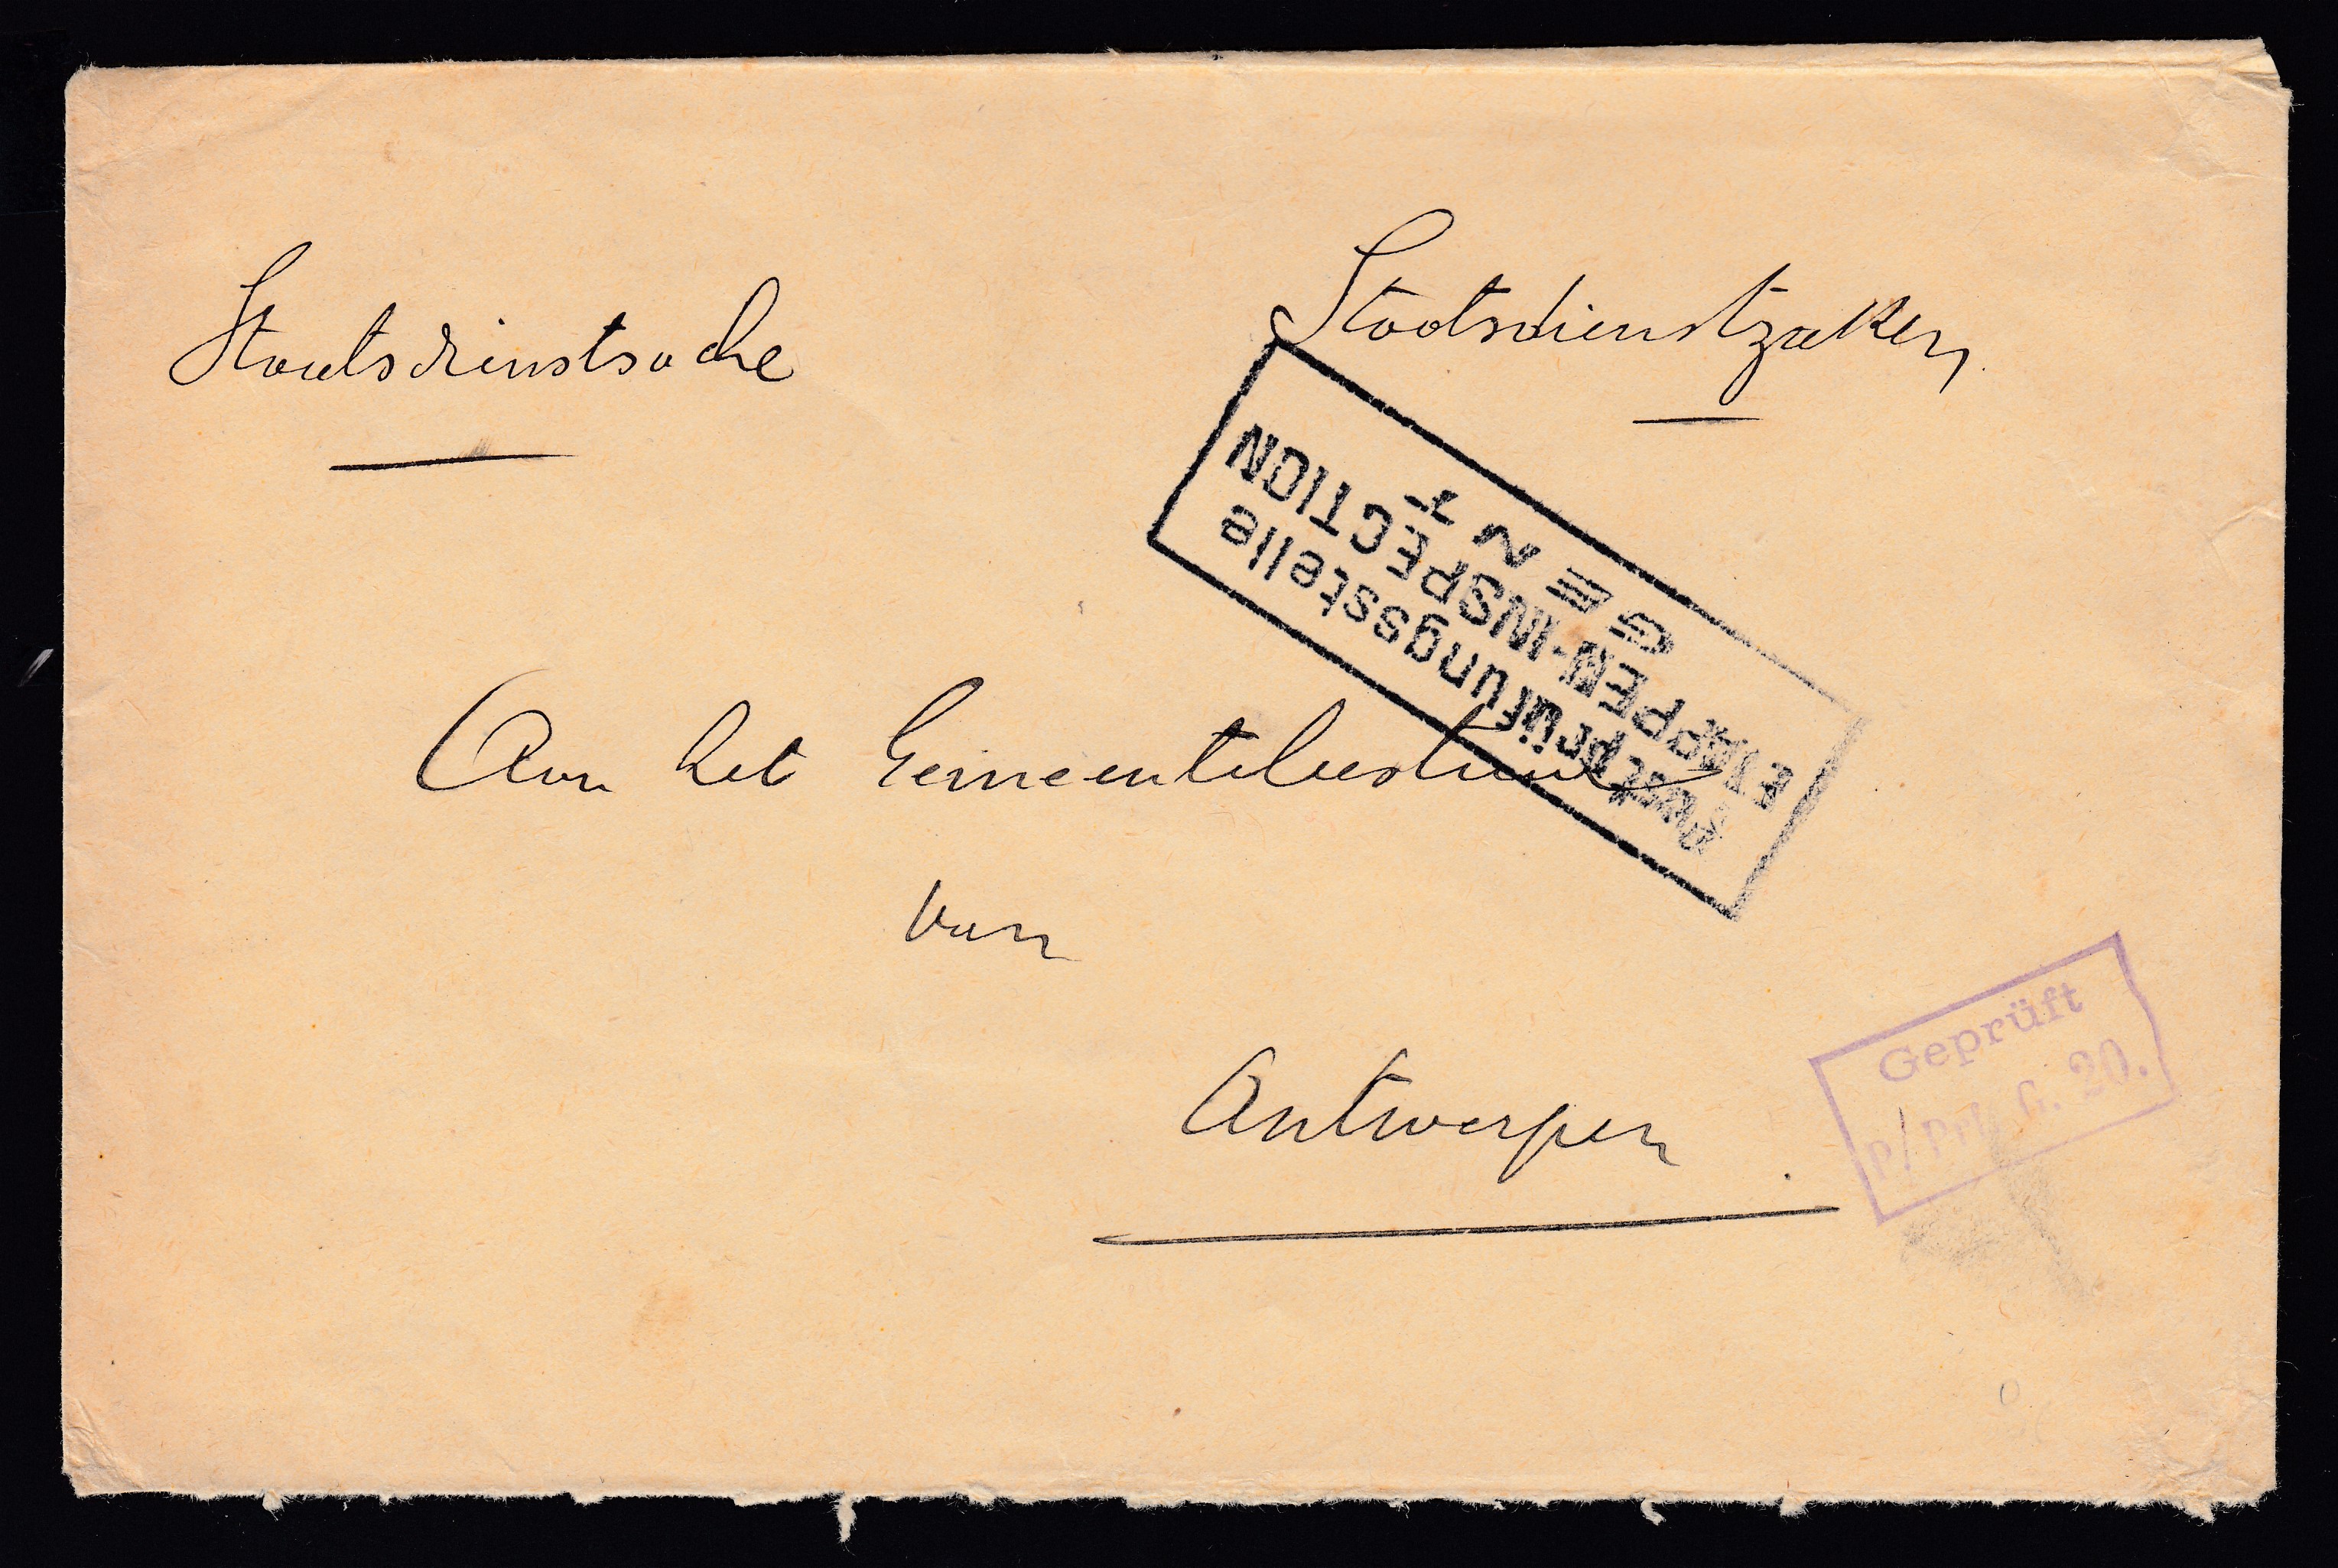 Staatsdienstsache
Staatsdienstzaken
Postprüfungsstelle
ETAPPEN-INSPECTION
GENT
Aan het Gemeentebestuur
van
Antwerpen
Geprüft
G. 20.